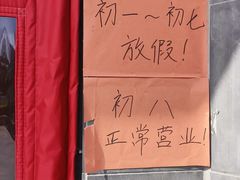 初一～初七
放假！
初八
正常营业！